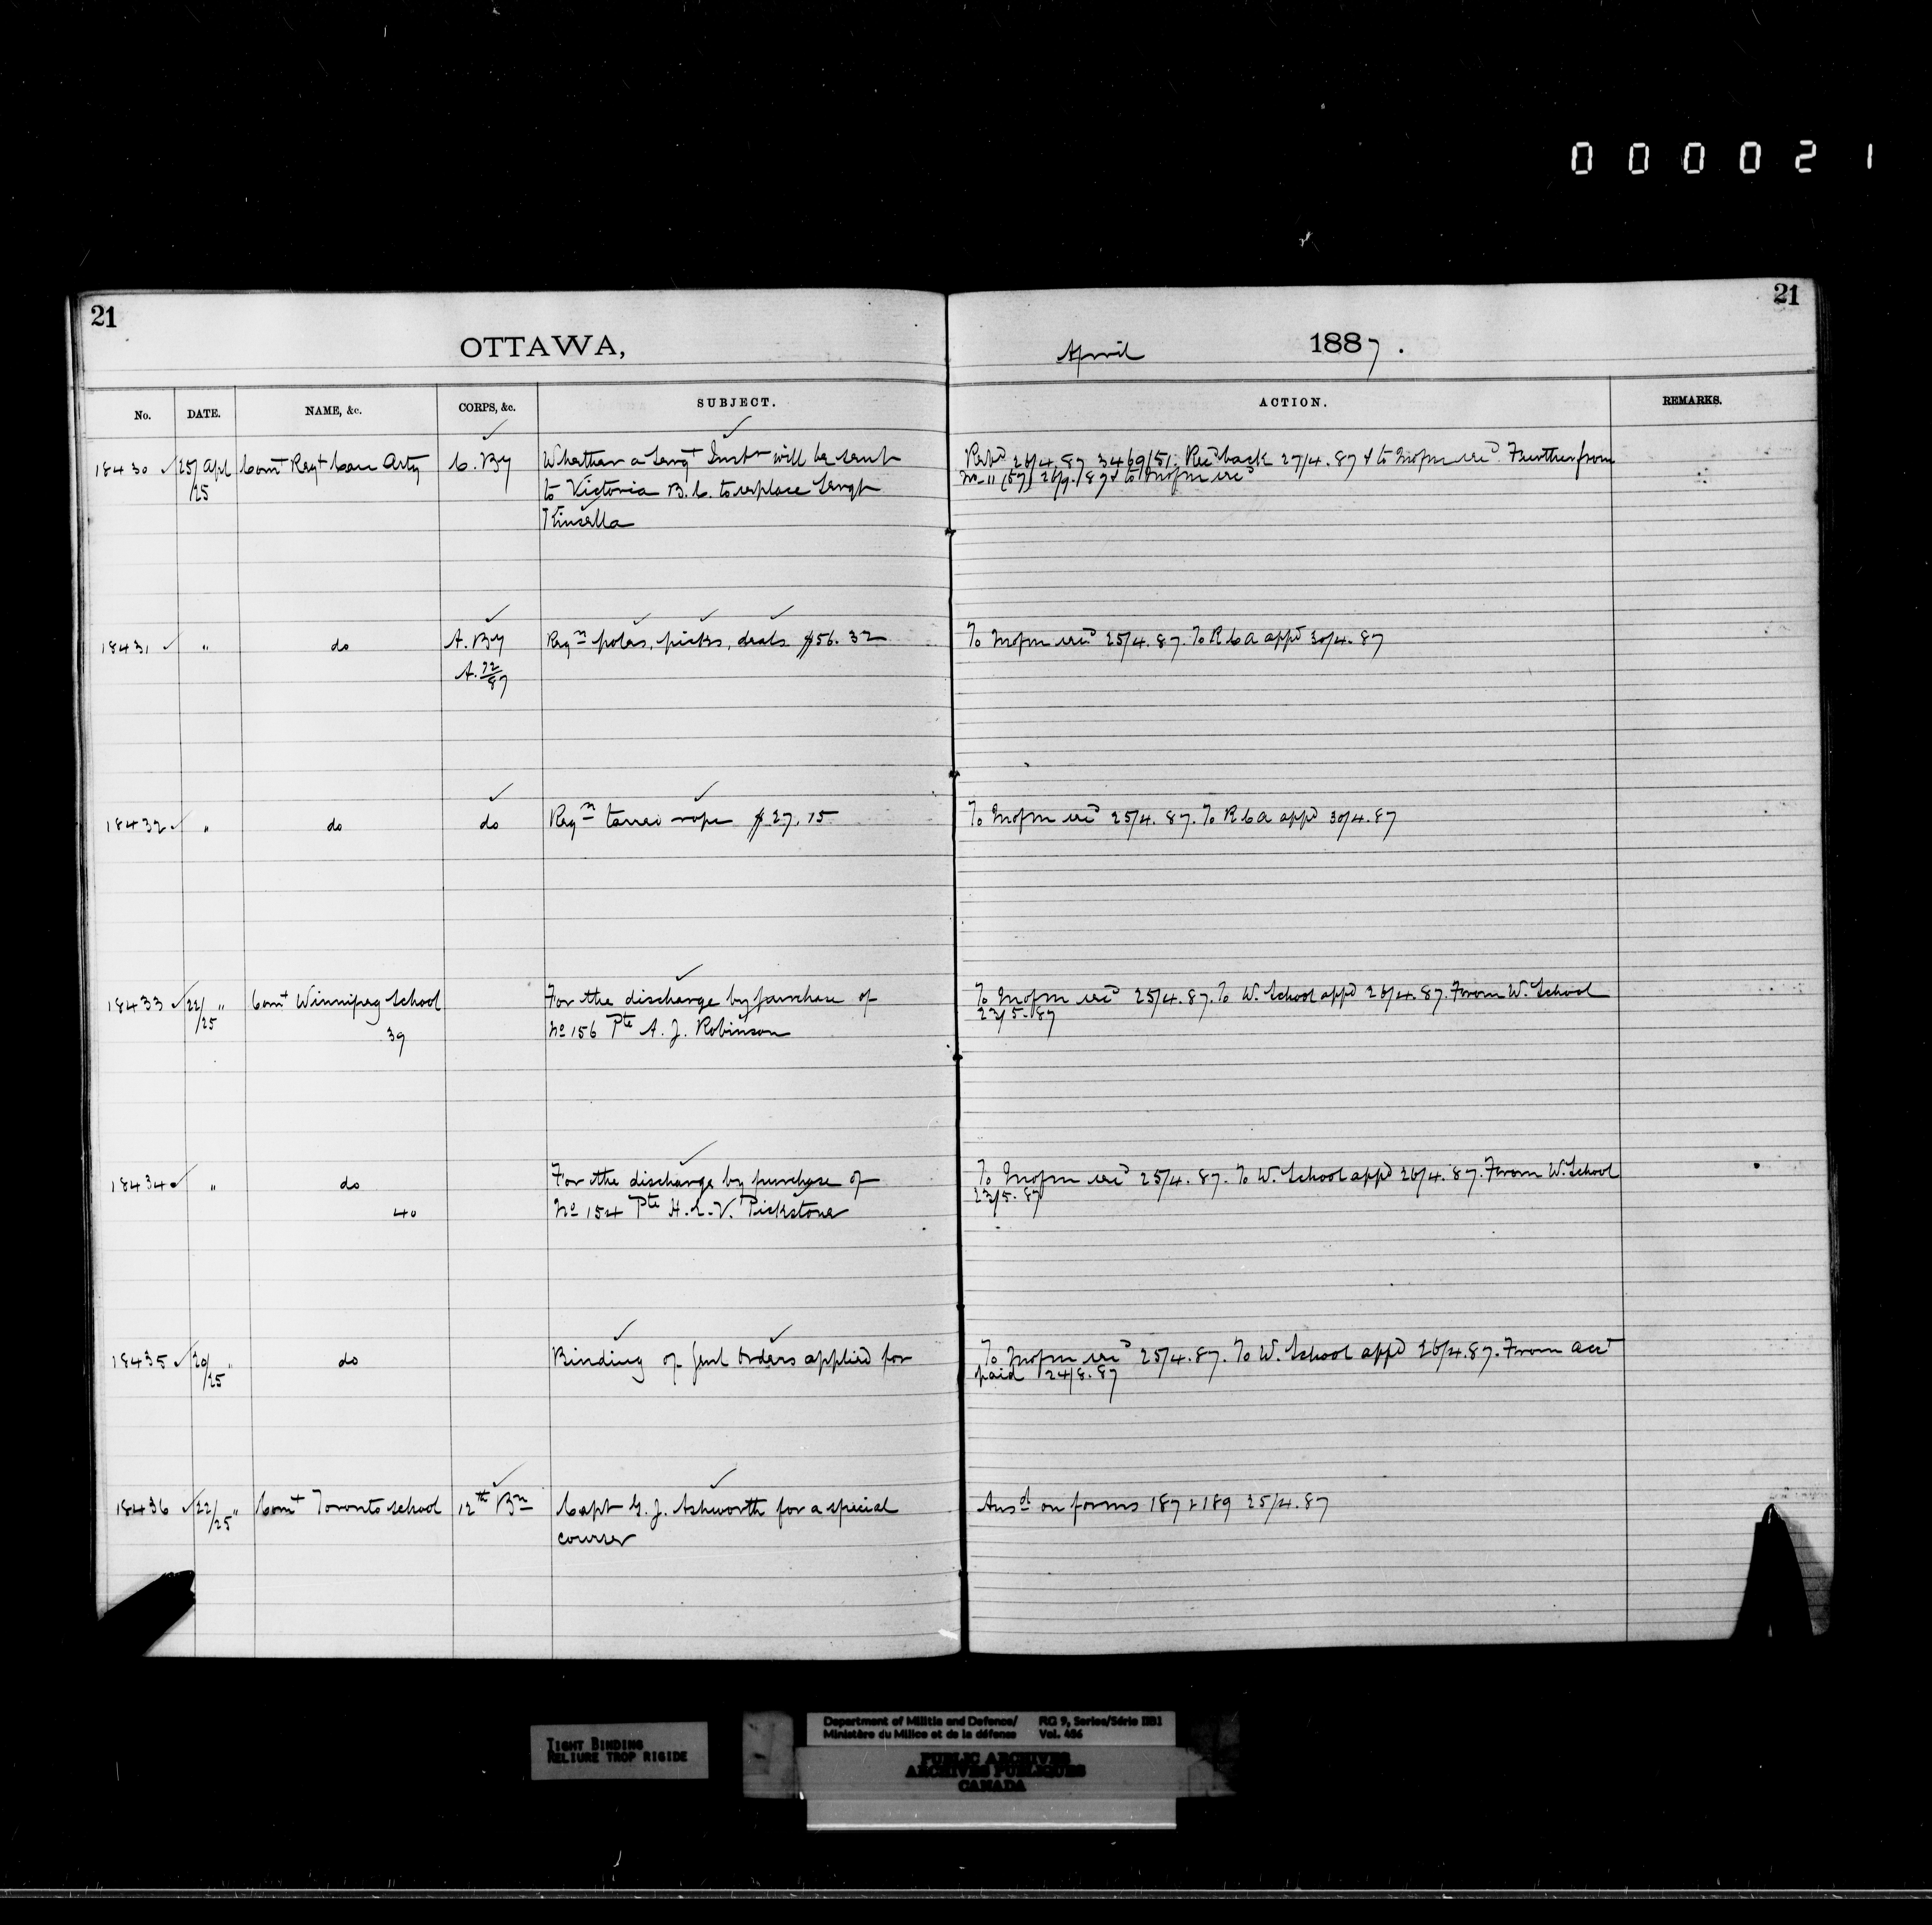 000021
21
21
OTTAWA,
April 1887.
No. DATE. NAME, &c. CORPS, &c. SUBJECT. ACTION. REMARKS.
18430 25/25 Apl Comt Regt Can Arty C. By Whether a Sergt Instr will be sent
to Victoria B.C. to replace Sergt
Kinsella
26/4.87 3469/51. Recd back 27/4.87 & to Mofm recd. Further from
No 11 (57) 26/9/87 & to Mofm recd
18431 " do A. By Reqn poles, picks, deals $56.32 To Mofm recd 25/4.87. To R C A appd 30/4.87
A. 72/87
18432 " do do Reqn tarred rope $27.15 To Mofm recd 25/4.87. To R C A appd 30/4.87
18433 22/25 " Comt Winnipeg School For the discharge by purchase of To Mofm recd 25/4.87. To W. School appd 26/4.87. From W. School
39 No 156 Pte A. J. Robinson 23/5.87
18434 " do For the discharge by purchase of To Mofm recd 25/4.87. To W. School appd 26/4.87. From W. School
40 No 154 Pte H. L. V. Pickstone 23/5.87
18435 20/25 " do Binding of Genl Orders applied for To Mofm recd 25/4.87. To W. School appd 26/4.87. From acct
paid 24/8.87
18436 22/25 " Comt Toronto School 12th Bn Capt G. J. Ashworth for a special Ansd on forms 187 & 189 25/4.87
course
TIGHT BINDING
RELIURE TROP RIGIDE
Department of Militia and Defence/ RG 9, Series/Série IIB1
Ministère du Milice et de la défense Vol. 486
PUBLIC ARCHIVES
ARCHIVES PUBLIQUES
CANADA